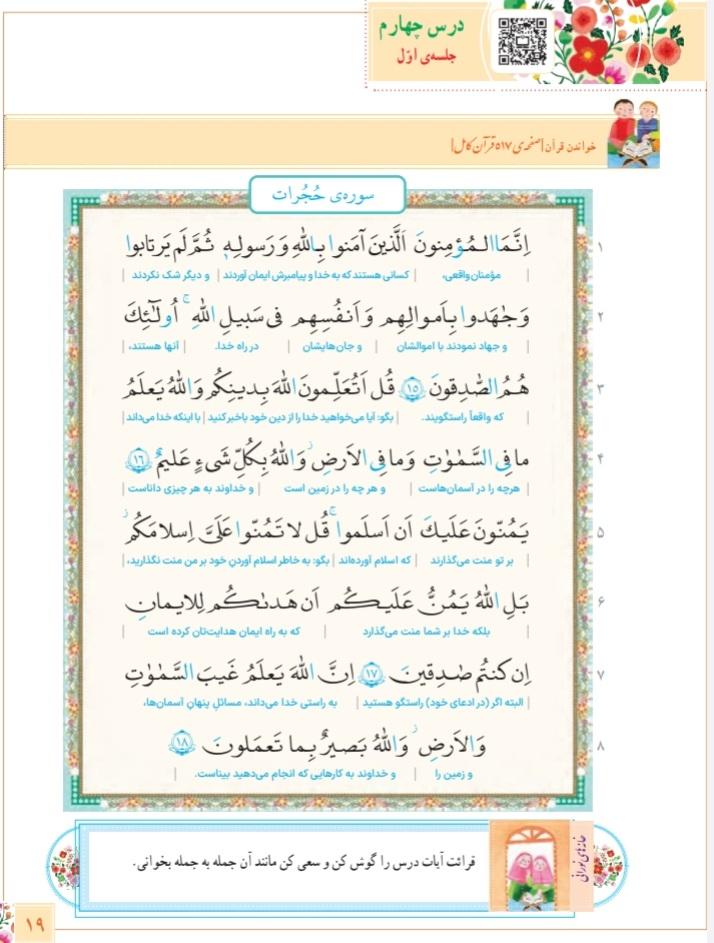 درس چهارم
جلسه‌ی اوّل
خواندن قرآن |صفحه‌ی ۵۱۷ قرآن کامل|
سوره‌ی حُجُرات
۱
اِنَّمَا الـمُؤمِنونَ الَّذینَ آمَنوا بِاللّٰهِ وَ رَسولِهٖ ثُمَّ لَم یَرتابوا
مؤمنان واقعی، | کسانی هستند که به خدا و پیامبرش ایمان آوردند | و دیگر شک نکردند
۲
وَ جٰهَدوا بِاَموالِهِم وَ اَنفُسِهِم فی سَبیلِ اللّٰهِ ۚ اُولٰـئِكَ
و جهاد نمودند با اموالشان | و جان‌هایشان | در راه خدا. | آنها هستند،
۳
هُمُ الصّٰدِقونَ ۱۵ قُل اَتُعَلِّمونَ اللّٰهَ بِدینِکُم وَ اللّٰهُ یَعلَمُ
که واقعاً راستگویند. | بگو: آیا می‌خواهید خدا را از دین خود باخبر کنید | با اینکه خدا می‌داند
۴
ما فِی السَّمٰوٰتِ وَ ما فِی الاَرضِ ۚ وَ اللّٰهُ بِکُلِّ شَیءٍ عَلیمٌ ۱۶
هرچه را در آسمان‌هاست | و هر چه را در زمین است | و خداوند به هر چیزی داناست
۵
یَمُنّونَ عَلَیكَ اَن اَسلَموا ۚ قُل لا تَمُنّوا عَلَیَّ اِسلامَکُم ۚ
بر تو منت می‌گذارند | که اسلام آورده‌اند | بگو: به خاطر اسلام آوردنِ خود بر من منت نگذارید،
۶
بَلِ اللّٰهُ یَمُنُّ عَلَیکُم اَن هَدٰىکُم لِلایمانِ
بلکه خدا بر شما منت می‌گذارد | که به راه ایمان هدایت‌تان کرده است
۷
اِن کُنتُم صٰدِقینَ ۱۷ اِنَّ اللّٰهَ یَعلَمُ غَیبَ السَّمٰوٰتِ
البته اگر (در ادعای خود) راستگو هستید | به راستی خدا می‌داند، مسائلِ پنهانِ آسمان‌ها،
۸
وَ الاَرضِ ۚ وَ اللّٰهُ بَصیرٌ بِما تَعمَلونَ ۱۸
و زمین را | و خداوند به کارهایی که انجام می‌دهید بیناست.
خانه‌های نورانی
قرائت آیات درس را گوش کن و سعی کن مانند آن جمله به جمله بخوانی.
۱۹